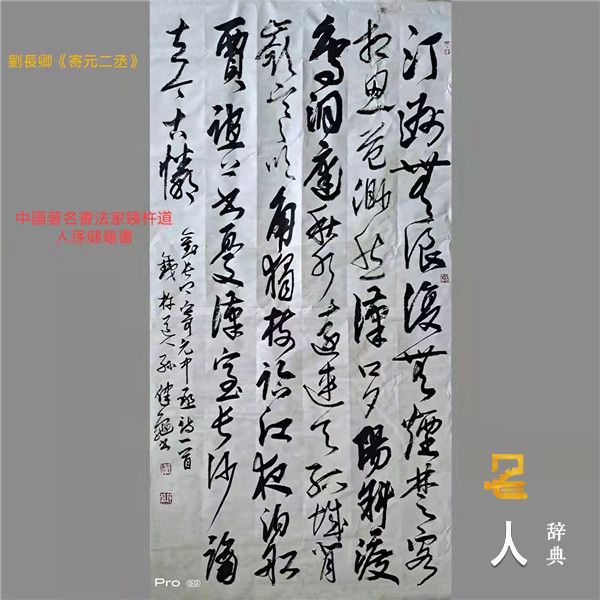 劉長卿《寄元二丞》
汀洲無浪復無煙楚客
相思益渺然漢口夕陽斜渡
鳥洞庭秋水遠連天孤城背
嶺寒吹角獨樹臨江夜泊船
賈誼上書憂漢室長沙謫
去今古憐
劉長卿寄元中丞詩一首
銕杵道人孫健龜書
中國著名書法家銕杵道
人孫健龜書
名人
辞典
Pro